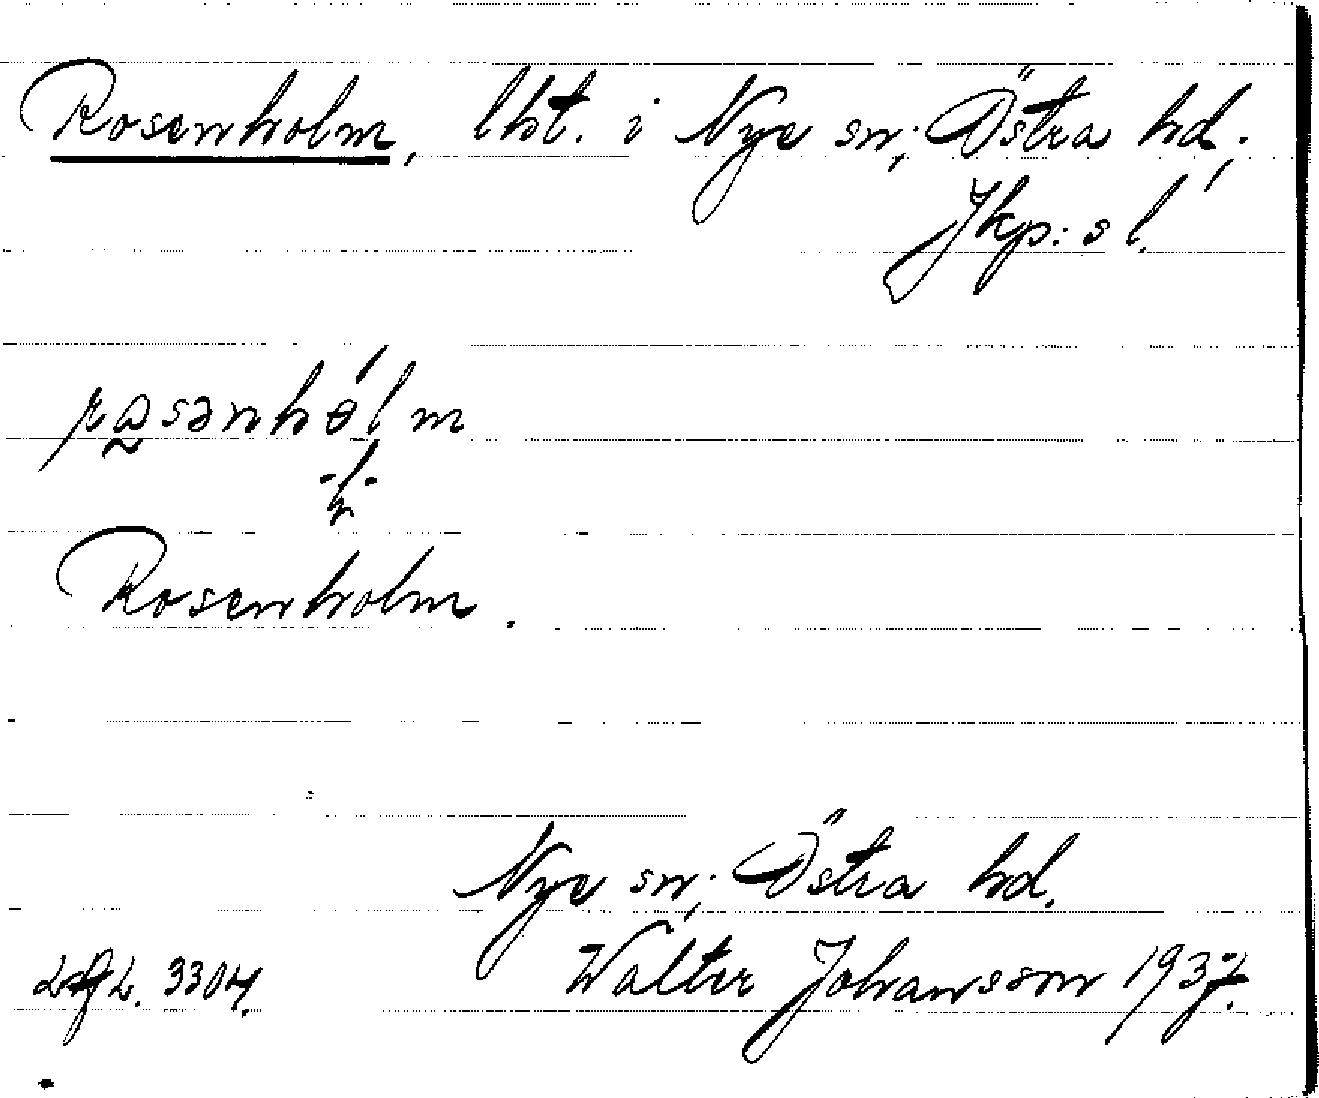 Rosenholm, lht. i Nye sn, Östra hd,
Jkp: s l.
Rosenholm.
Nye sn, Östra hd.
3304. Walter Johansson 1937.